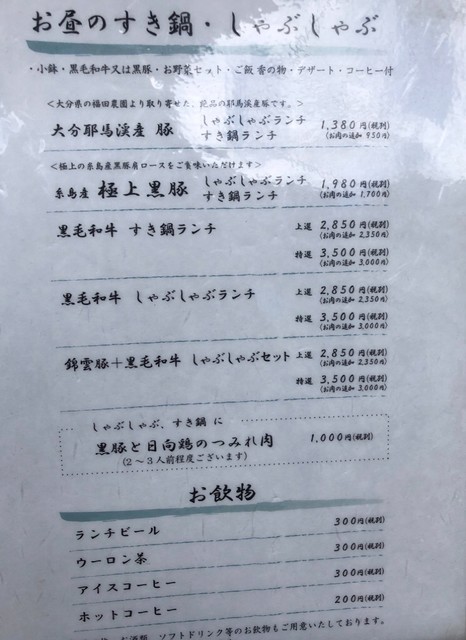 お昼のすき鍋・しゃぶしゃぶ
・小鉢・黒毛和牛又は黒豚・お野菜セット・ご飯 香の物・デザート・コーヒー付
＜大分県の福田農園より取り寄せた、絶品の耶馬渓産豚です。＞
大分耶馬渓産 豚 しゃぶしゃぶランチ 1,380円(税別)
すき鍋ランチ (お肉の追加 950円)
＜極上の糸島産黒豚肩ロースをご賞味いただけます＞
糸島産 極上黒豚 しゃぶしゃぶランチ 1,980円(税別)
すき鍋ランチ (お肉の追加 1,700円)
黒毛和牛 すき鍋ランチ 上選 2,850円(税別)
(お肉の追加 2,350円)
特選 3,500円(税別)
(お肉の追加 3,000円)
黒毛和牛 しゃぶしゃぶランチ 上選 2,850円(税別)
(お肉の追加 2,350円)
特選 3,500円(税別)
(お肉の追加 3,000円)
錦雲豚＋黒毛和牛 しゃぶしゃぶセット 上選 2,850円(税別)
(お肉の追加 2,350円)
特選 3,500円(税別)
(お肉の追加 3,000円)
しゃぶしゃぶ、すき鍋 に
黒豚と日向鶏のつみれ肉 1,000円(税別)
(2～3人前程度ございます)
お飲物
ランチビール 300円(税別)
ウーロン茶 300円(税別)
アイスコーヒー 300円(税別)
ホットコーヒー 200円(税別)
お酒類、ソフトドリンク等のお飲物もご用意いたしております。